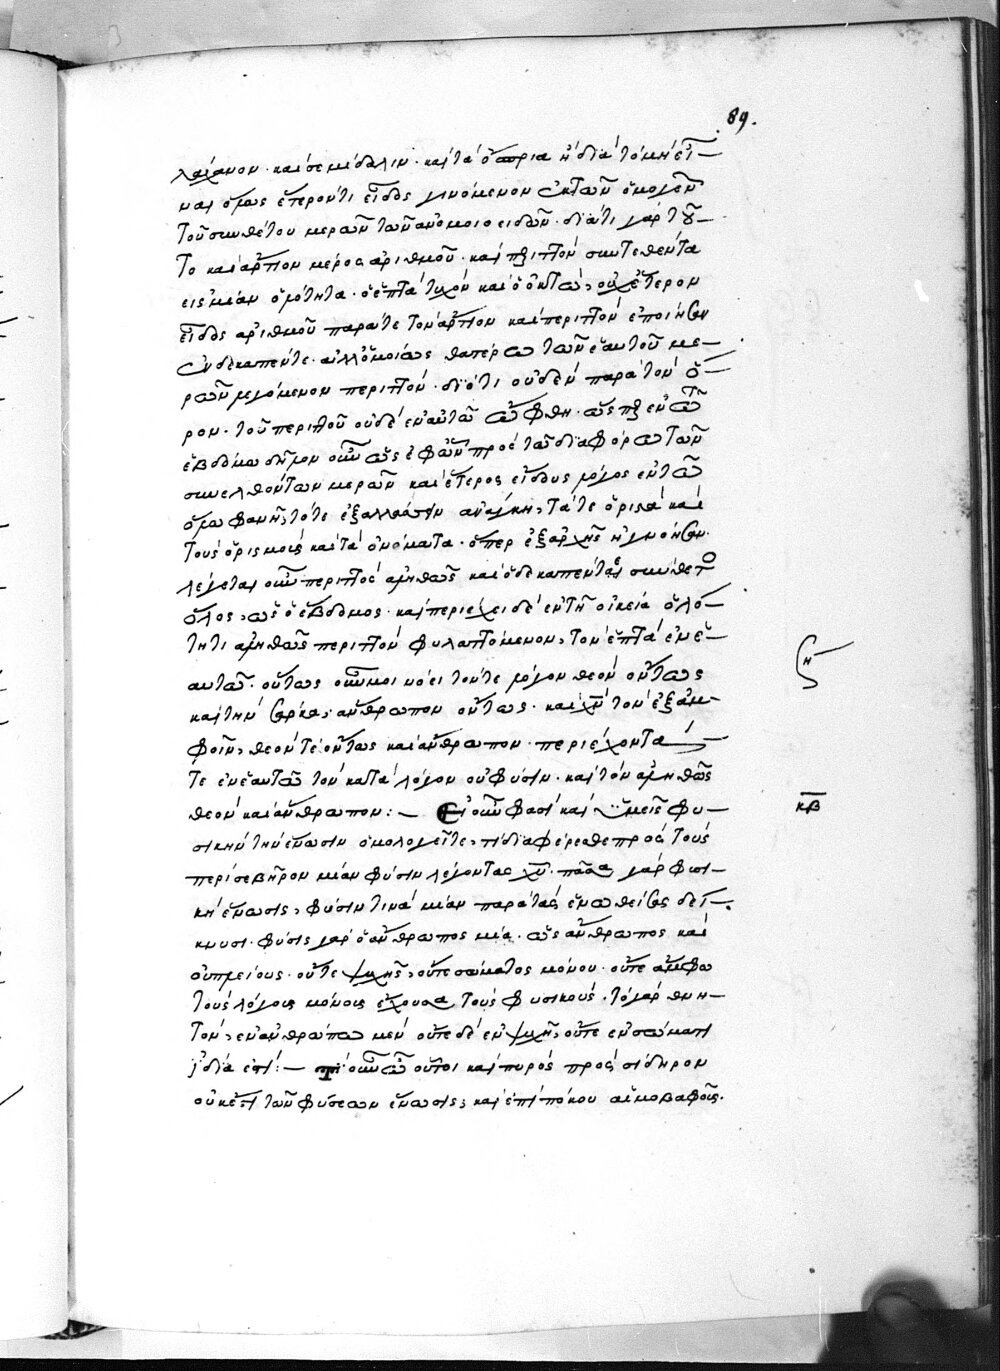 89.
λάχανον · καὶ σεμίδαλιν · καὶ τὰ ὅσπρια ἢ διὰ τὸ μὴ εἶ-
ναι ὅμως ἕτερόν τι εἶδος γινόμενον ἐκ τῶν ὁμογενῶν
τοῦ συνθέτου μερῶν τῶν ἀνομοιοειδῶν · διὰ τί γὰρ τοῦ-
το καὶ ἄρτιον μέρος ἀριθμοῦ · καὶ περιττὸν συντεθέντα
εἰς μίαν ὁμότητα · ὁ ἑπτὰ τυχὸν καὶ ὁ ὀκτώ, οὐχ ἕτερον
εἶδος ἀριθμοῦ παρά τε τὸν ἄρτιον καὶ περιττὸν ἐποίησαν
ἐν δεκαπέντε · ἀλλ' ὁμοίως θατέρω τῶν ἑαυτοῦ με-
ρῶν λεγόμενον περιττόν · διότι οὐδὲν παρὰ τὸν ὅ-
ρον · τοῦ περιττοῦ οὐδὲ ἐν αὐτῶ ὤφθη · ὥσπερ ἐν τῶ
ἑβδόμω δῆλον οὖν ὡς ἐφ' ὧν πρὸς τῶ διαφόρω τῶν
συνελθόντων μερῶν καὶ ἕτερος εἴδους λόγος ἐν τῶ
ὅλω φανῆ, τότε ἐξαλλάσσειν ἀνάγκη, τά τε ὁρικὰ καὶ
τοὺς ὁρισμοὺς καὶ τὰ ὀνόματα · ὅπερ ἐξ ἀρχῆς ἠγνόησαν·
λέγεται οὖν περιττὸς ἀληθῶς καὶ ὁ δεκαπέντε σύνθετος
ὅλος, ὡς ὁ ἕβδομος · καὶ περιέχει δὲ ἐν τῆ οἰκεία ὁλό-
τητι ἀληθῶς περιττὸν φυλαττόμενον, τὸν ἑπτὰ ἐν ἑ-
αυτῶ · οὕτως οὖν μοι νόει τόν τε λόγον θεὸν ὄντως
καὶ τὴν σάρκα, ἄνθρωπον ὄντως · καὶ χν τὸν ἐξ ἀμ-
φοῖν, θεόν τε ὄντως καὶ ἄνθρωπον · περιέχοντά
τε ἐν ἑαυτῶ τὸν κατὰ λόγον οὐ φύσιν · καὶ τὸν ἀληθῶς
θεὸν καὶ ἄνθρωπον : – Εἰ οὖν φασὶ καὶ ὑμεῖς φυ-
σικὴν τὴν ἕνωσιν ὁμολογεῖτε, τί διαφέρεσθε πρὸς τοὺς
περὶ σεβῆρον μίαν φύσιν λέγοντας χν · πᾶσα γὰρ φυσι-
κὴ ἕνωσις, φύσιν τινὰ μίαν παρὰ τὰς ἑνωθείσας δεί-
κνυσι · φύσις γὰρ ὁ ἄνθρωπος μία · ὡς ἄνθρωπος καὶ
οὔτε ψυχῆς, οὔτε σώματος μόνου · οὔτε ἄμφω
τοὺς λόγους μόνους ἔχουσα τοὺς φυσικούς · τὸ γὰρ θνη-
τὸν, ἐν ἀνθρώπω μὲν οὔτε δὲ ἐν ψυχῆ, οὔτε ἐν σώματι
ἰδία ἐστί : – Τί οὖν ὦ οὗτοι καὶ πυρὸς πρὸς σίδηρον
οὐκ ἔστι τῶν φύσεων ἕνωσις, καὶ ἐπὶ πόκου αἱμοβαφοῦς.
ση
κβ